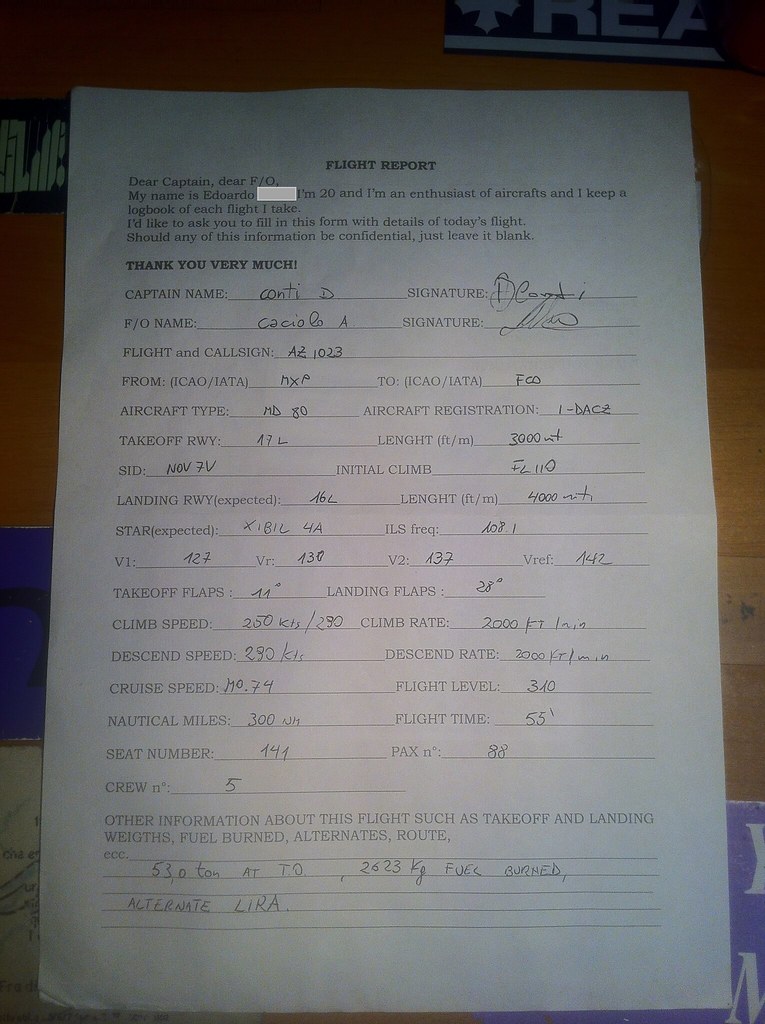 REA
FLIGHT REPORT
Dear Captain, dear F/O,
My name is Edoardo I'm 20 and I'm an enthusiast of aircrafts and I keep a
logbook of each flight I take.
I'd like to ask you to fill in this form with details of today's flight.
Should any of this information be confidential, just leave it blank.
THANK YOU VERY MUCH!
CAPTAIN NAME: Conti D SIGNATURE: D Conti
F/O NAME: Caciolo A SIGNATURE:
FLIGHT and CALLSIGN: AZ 1023
FROM: (ICAO/IATA) MXP TO: (ICAO/IATA) FCO
AIRCRAFT TYPE: MD 80 AIRCRAFT REGISTRATION: I-DACZ
TAKEOFF RWY: 17L LENGHT (ft/m) 3000 mt
SID: NOV 7V INITIAL CLIMB FL 110
LANDING RWY(expected): 16L LENGHT (ft/m) 4000 mti
STAR(expected): XIBIL 4A ILS freq: 108.1
V1: 127 Vr: 130 V2: 137 Vref: 142
TAKEOFF FLAPS : 11° LANDING FLAPS : 28°
CLIMB SPEED: 250 Kts/290 CLIMB RATE: 2000 FT/min
DESCEND SPEED: 290 Kts DESCEND RATE: 2000 FT/min
CRUISE SPEED: M0.74 FLIGHT LEVEL: 310
NAUTICAL MILES: 300 NM FLIGHT TIME: 55'
SEAT NUMBER: 141 PAX n°: 88
CREW n°: 5
OTHER INFORMATION ABOUT THIS FLIGHT SUCH AS TAKEOFF AND LANDING
WEIGTHS, FUEL BURNED, ALTERNATES, ROUTE,
ecc.
53,0 ton AT TO , 2623 Kg FUEL BURNED,
ALTERNATE LIRA.